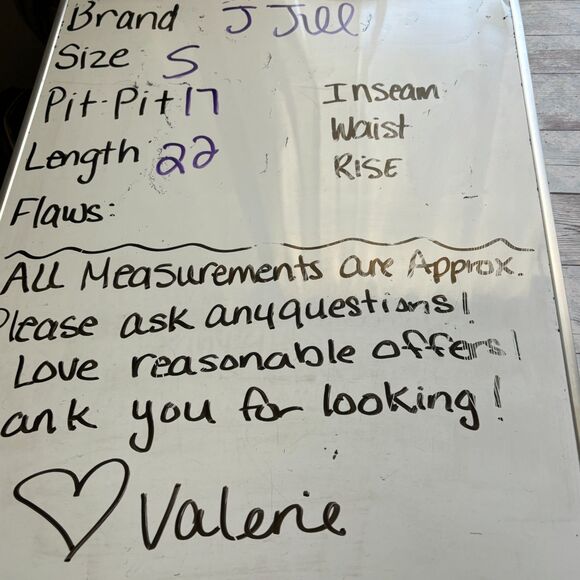 Brand J Jill
Size S
Pit-Pit 17
Length 22
Flaws:
Inseam
Waist
RISE
ALL Measurements are Approx.
Please ask any questions!
Love reasonable offers!
ank you for looking!
Valerie